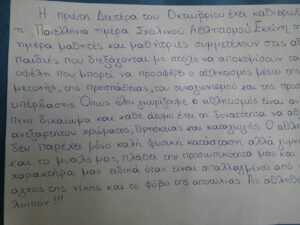 Η πρώτη Δευτέρα του Οκτωβρίου έχει καθιερωθ
η Πανελλήνια ημέρα Σχολικού Αθλητισμού. Εκείνη τη
ημέρα μαθητές και μαθήτριες συμμετέχουν στις αθ
παιδιές που διεξάγονται με στόχο να αποκομίσουν τα
οφέλη που μπορεί να προσφέρει ο αθλητισμός μέσω της
μετοχής, της προσπάθειας, του συναγωνισμού και της προσω
υπέρβασης. Όπως όλοι γνωρίζουμε ο αθλητισμός είναι αν
πινο δικαίωμα και κάθε άτομο έχει τη δυνατότητα να αθ
ανεξαρτήτου χρώματος, θρησκείας και καταγωγής. Ο αθλη
δεν παρέχει μόνο καλή φυσική κατάσταση αλλά γυμν
και το μυαλό μας, πλάθει την προσωπικότητα μας και
χαρακτήρα μας ειδικά όταν είναι απαλλαγμένος από
άγχος της νίκης και το φόβο της αποτυχίας. Ας αθληθο
λοιπόν!!!